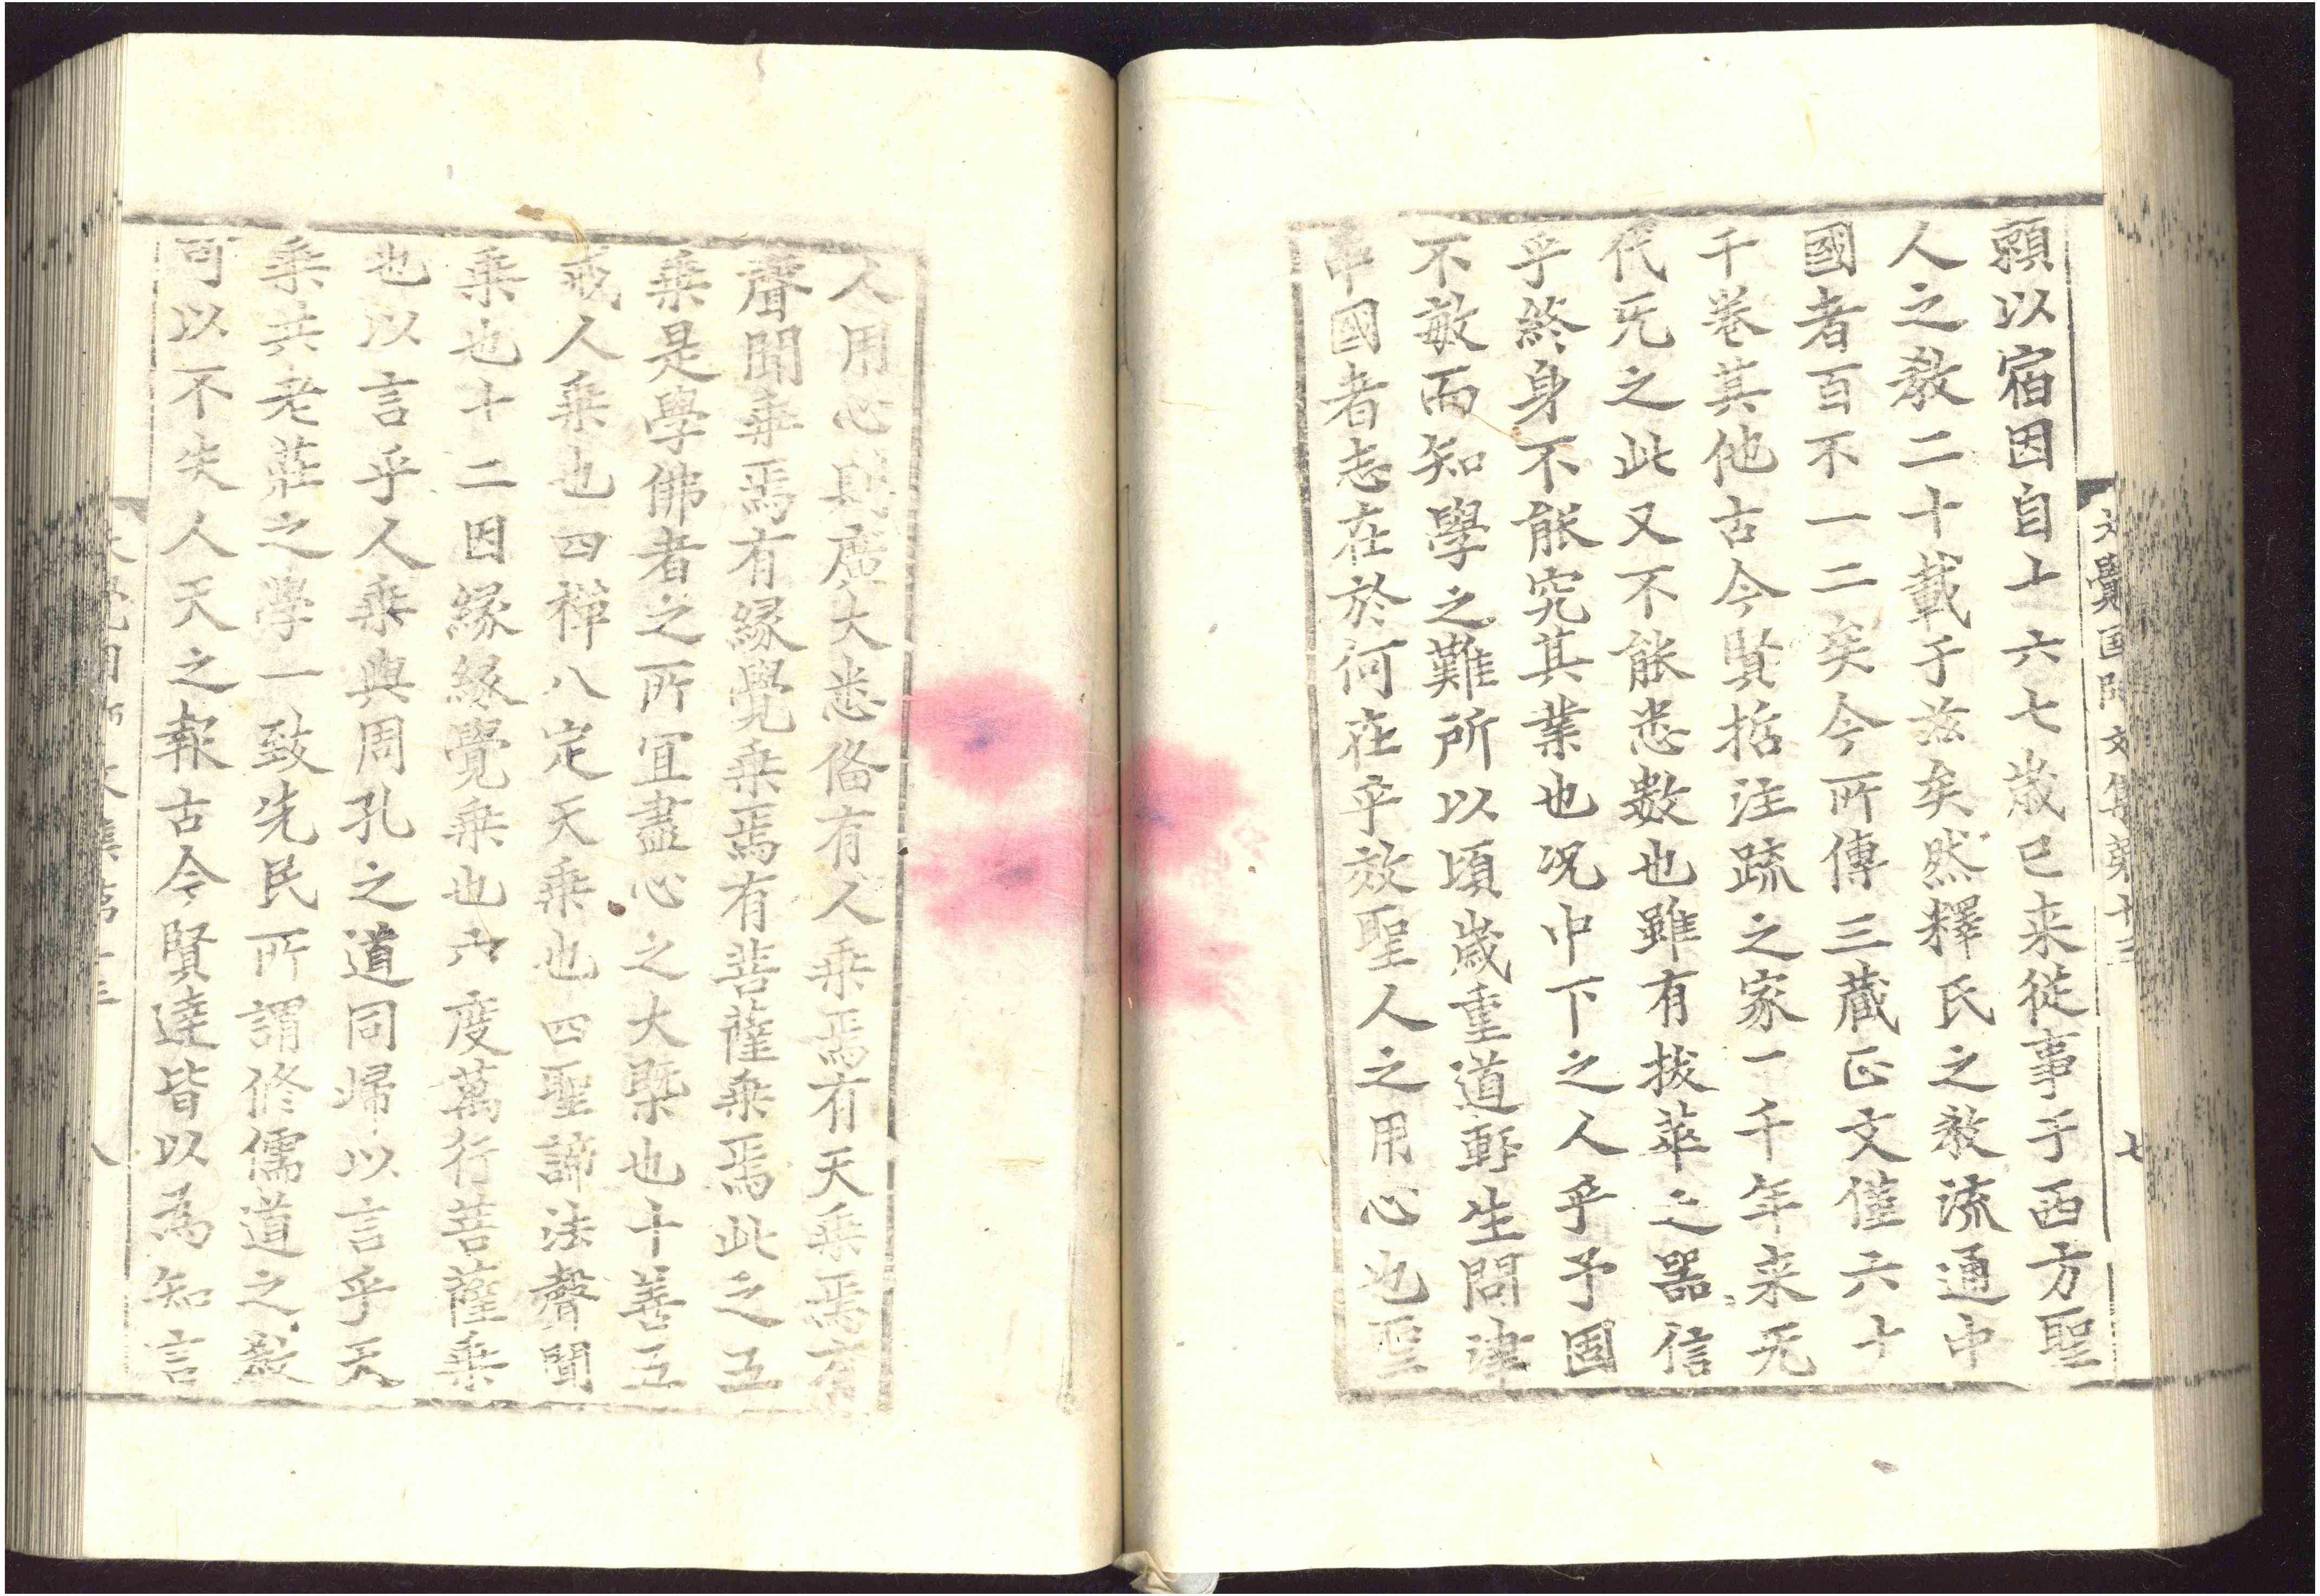 大覺國師文集第十三
七
頼以宿因自上六七歲已来從事于西方聖
人之教二十載于玆矣然釋氏之教流通中
國者百不一二矣今所傳三藏正文僅六十
千卷其他古今賢括注疏之家一千年来无
代无之此又不能悉數也雖有拔萃之器信
乎終身不能究其業也况中下之人乎予固
不敏而知學之難所以頃歲重道輕生問津
中國者志在於何在乎效聖人之用心也聖
人用心則廣大悉俻有人乗焉有天乗焉有
聲聞乗焉有緣覺乗焉有菩薩乗焉此之五
乗是學佛者之所宜盡心之大槩也十善五
戒人乗也四禪八定天乗也四聖諦法聲聞
乗也十二因緣緣覺乗也六度萬行菩薩乗
也以言乎人乗與周孔之道同歸以言乎天
乗共老莊之學一致先民所謂修儒道之教
可以不失人天之報古今賢達皆以為知言
大覺國師文集第十三
八